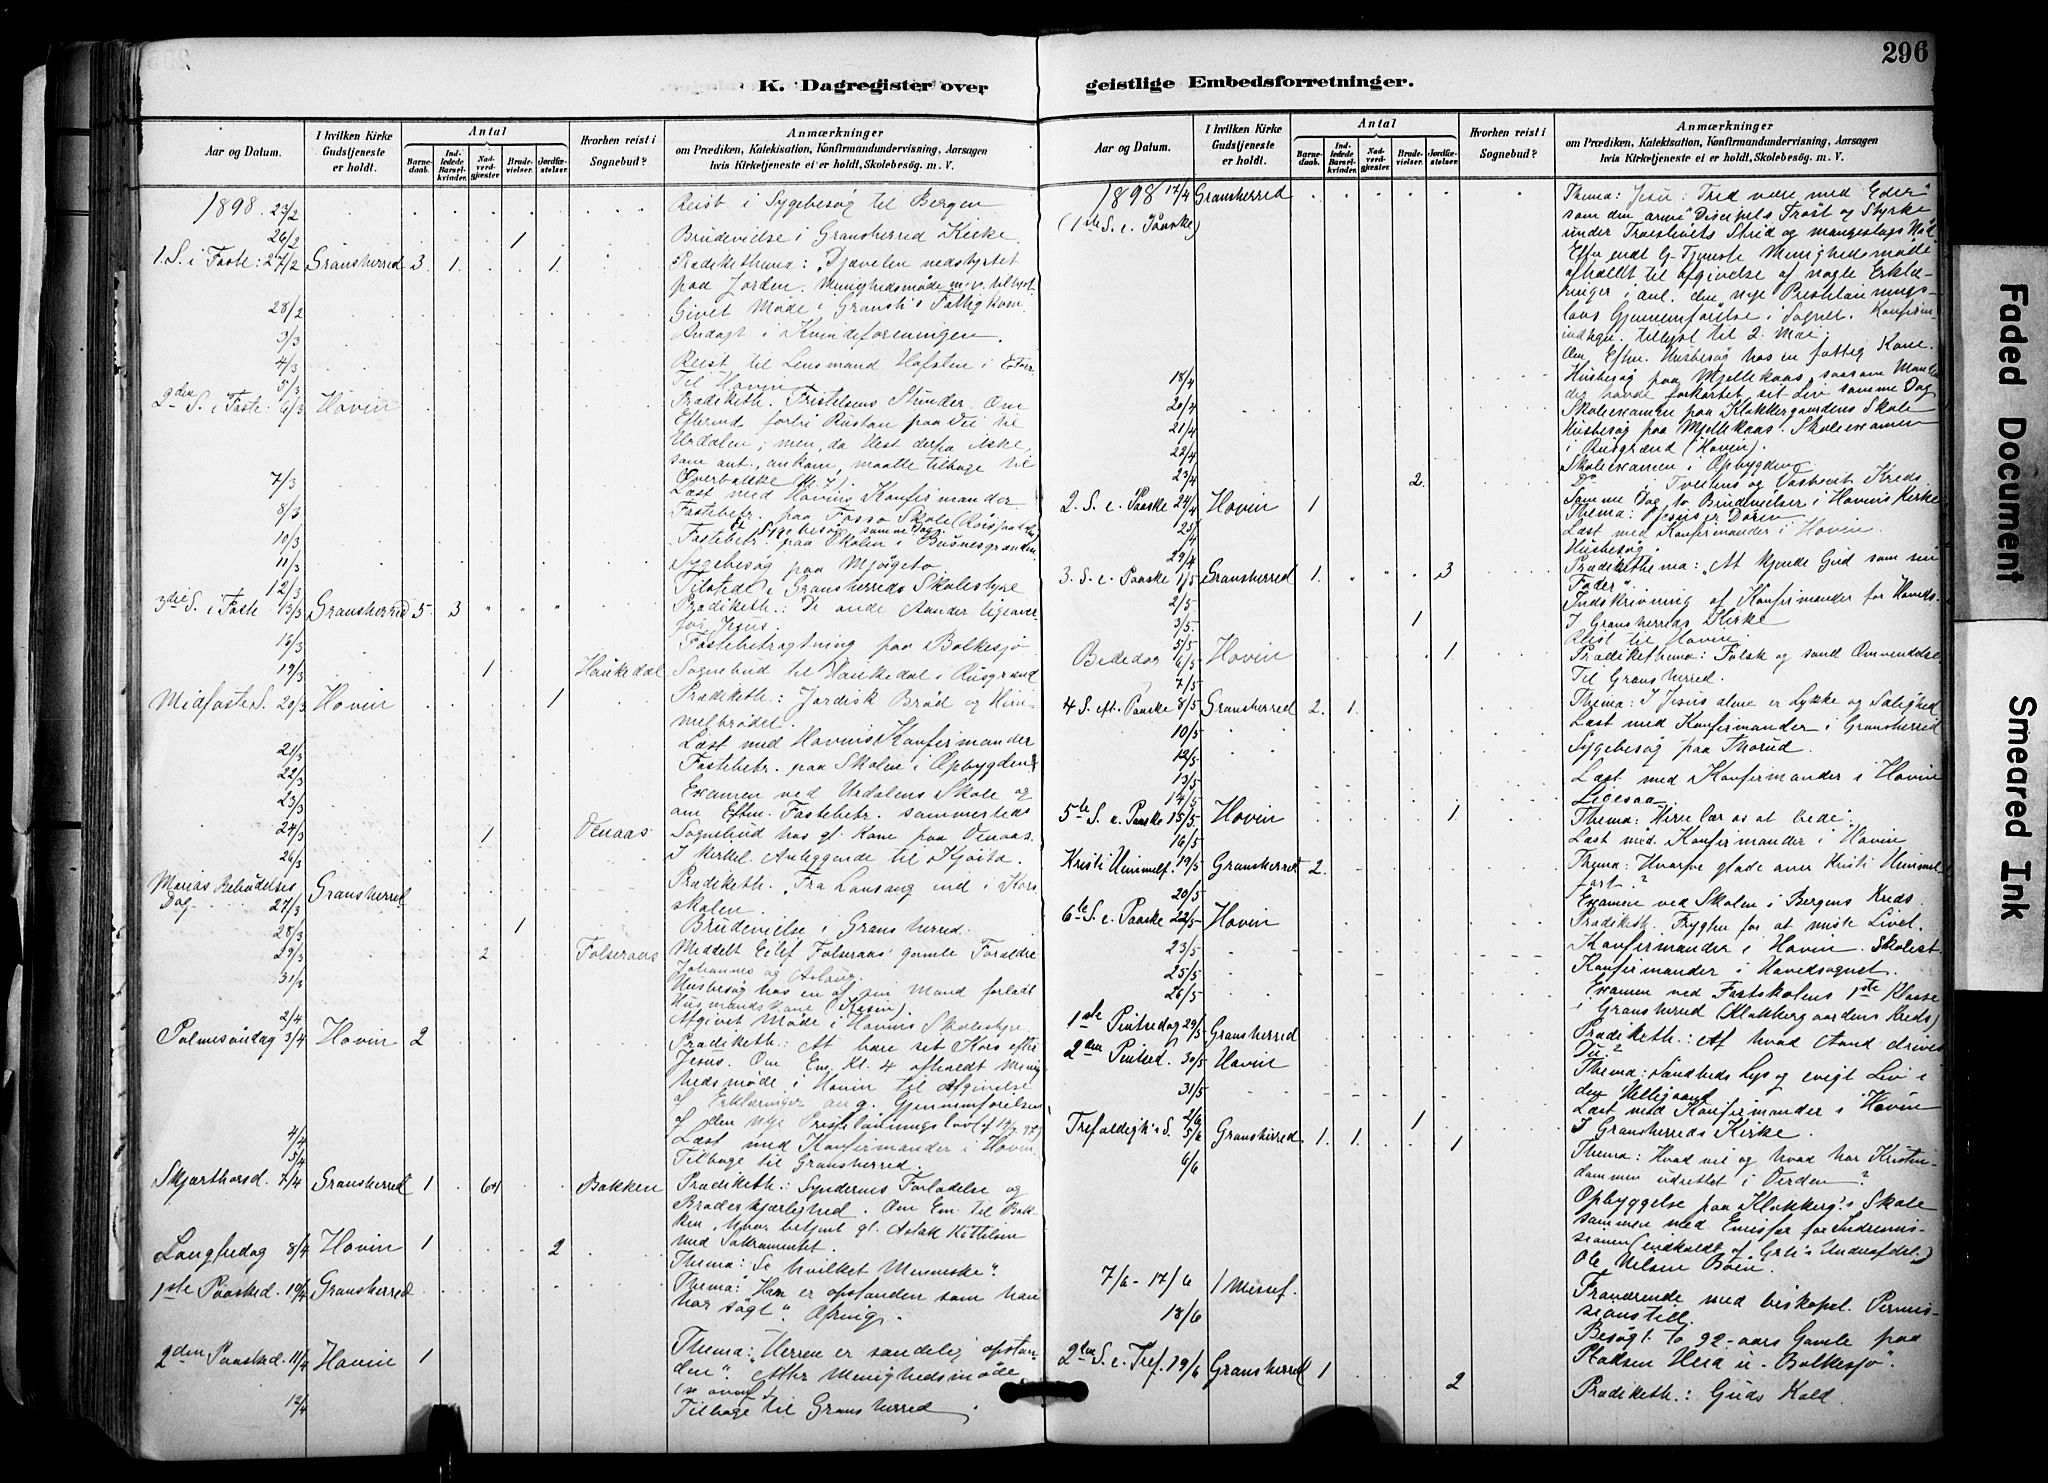 296
K. Dagregister over
geistlige Embedsforretninger.
Aar og Datum.
I hvilken Kirke
Gudstjeneste
er holdt.
Antal
Barne-
daab.
Ind-
ledede
Barsel-
kvinder.
Nad-
verd-
gjæster.
Brude-
vielser.
Jordfæ-
stelser.
Hvorhen reist i
Sognebud?
Anmærkninger
om Prædiken, Katekisation, Konfirmandundervisning, Aarsagen
hvis Kirketjeneste ei er holdt, Skolebesøg. m. V.
1898. 23/2 Reist i Sygebesøg til Bergen
26/2 1 Brudevielse i Gransherred Kirke.
1. S. i Faste: 27/2 Gransherred 3. 1. 1. Prædikethema: Djævelen nedstyrtet
paa Jorden. Menighedsmøde
28/2 Givet Møde i Gransh's Fattigkom.
3/3 Andagt i Kvindeforeningen.
4/3 Reist til Lensmand Hofsten i
5/3 Til Hovin
2den S. i Faste: 6/3 Hovin Prædiketh. Fristelsens Stunder. Om
Efterm. forbi Rustan paa Vei til
Urdalen; men, da Hest derfra
som ant., ankom, maatte tilbage til
Øverbakke (Kl. 7).
7/3 Læst med Hovins Konfirmander
8/3 Fastebetr. paa Fosso Skole
Sygebesøg samme Dag.
10/3 Fastebetr. paa Skolen i Busnesgrænden
11/3 Sygebesøg paa Mjøgeto.
12/3 Tilstede i Gransherreds Skolestyre
3die S. i Faste 13/3 Gransherred 5 3 " " " Prædiketh.: De onde Aander ligeover-
for Jesus.
16/3 Fastebetragtning paa Bolkesjø
19/3 1 Haukedal Sognebud til Haukedal i Rusgrænd
Midfaste S. 20/3 Hovin 1 Prædiketh.: Jordisk Brød og Him-
melbrødet.
21/3 Læst med Hovins Konfirmander
22/3 Fastebetr. paa Skolen i Øpbygden
23/3 Examen ved Urdalens Skole og
om Eftm. Fastebetr. sammesteds
24/3 1 Venaas Sognebud hos gl. Kone paa Venaas.
26/3 I kirkel. Anliggende til
Marias Bebudelses
Dag 27/3 Gransherred Prædiketh. Fra Lovsang ind i Kors
skolen.
28/3 1 Brudevielse i Gransherred.
29/3 2 Folseraas Meddelt Eilef Folseraas' gamle Forældre
Johannes og Aslaug.
31/3 Husbesøg hos en af sin Mand forladt
Husmandskone
2/4 Afgivet Møde i Hovins Skolestyre
Palmesøndag 3/4 Hovin 2 Prædiketh.: At bære sit Kors efter
Jesus. Om Em. Kl. 4 afholdt Menig
hedsmøde i Hovin til Afgivelse
af Erklæringer ang. Gjennemførelsen
af den nye Presteløningslov
4/4 Læst med Konfirmander i Hovin
5/4 Tilbage til Gransherred.
Skjærthorsd. 7/4 Gransherred 1 64 Bakken Prædiketh.: Syndernes Forladelse og
Broderkjærlighed. Om Em. til Bak-
ken, hvor betjent gl. Aslak Kittilsen
med Sakramentet.
Langfredag 8/4 Hovin 1 2 Thema: Se hvilket Menneske".
1ste Paasked. 10/4 Gransherred Thema: "Han er opstanden som han
har sagt". Ofring.
2den Paasked. 11/4 Hovin 1 Thema: "Herren er sandelig opstan-
den". Atter Menighedsmøde
12/4 Tilbage til Gransherred.
Aar og Datum.
I hvilken Kirke
Gudstjeneste
er holdt.
Antal
Barne-
daab.
Ind-
ledede
Barsel-
kvinder.
Nad-
verd-
gjæster.
Brude-
vielser.
Jordfæ-
stelser.
Hvorhen reist i
Sognebud?
Anmærkninger
om Prædiken, Katekisation, Konfirmandundervisning, Aarsagen
hvis Kirketjeneste ei er holdt, Skolebesøg. m. V.
1898 17/4 Gransherred Thema: Jesu: Fred være med Eder"
(1ste S. e. Paaske) som den arme Discipels Trøst og Styrke
under Troeslivets Strid og mangeslags Nød.
Efter endt G-Tjeneste Menighedsmøde
afholdt til afgivelse af nogle Erklæ-
ringer i anl. den nye Presteløningss-
lovs Gjennemførelse i Sognet. Konfirm-
indtegn. tillyst til 2. Mai.
Om Eftm. Husbesøg hos en fattig Kone.
18/4 Husbesøg paa Mjellekaas, saasom Manden
der havde forkortet sit Liv samme Dag
20/4 Skoleexamen paa Klokkergaardens Skole
21/4 Husbesøg paa Mjellekaas. Skoleexamen
i Rusgrænd (Hovin).
22/4 Skoleexamen i Øpbygden
23/4 2. Do i Tveitens og Kreds.
Samme Dag to Brudevielser i Hovins Kirke
2. S. e. Paaske 24/4 Hovin 1 Thema: Jesus er Døren
25/4 Læst med Konfirmander i Hovin
29/4 Husbesøg.
3. S. e. Paaske 1/5 Gransherred 1. " " " 3 Prædikethema: "At kjende Gud som sin
Fader".
2/5 Indskrivning af Konfirmander for Hoveds.
3/5 1 I Gransherreds Kirke
5/5 Reist til Hovin
Bededag 6/5 Hovin 1. Prædikethema: Falsk og sand Omvendelse
7/5 Til Gransherred.
4 S. eft. Paaske 8/5 Gransherred 2. 1. Thema: I Jesus alene er Lykke og Salighed
10/5 Læst med Konfirmander i Gransherred
12/5 Sygebesøg paa Thorud.
13/5 Læst med Konfirmander i Hovin
14/5 Ligesaa
5te S. e. Paaske 15/5 Hovin 1 Thema: Herre lær os at bede.
16/5 Læst med Konfirmander i Hovin
Kristi Himmelf. 19/5 Gransherred 2. Thema: Hvorfor glade over Kristi Himmel
fart?
20/5 Examen ved Skolen i Bergens Kreds.
6te S. e. Paaske 22/5 Hovin Prædiketh. Frygten for at miste Livet.
23/5 Konfirmander i Hovin. Skolest.
25/5 Konfirmander i Hovedsognet.
26/5 Examen ved Fastskolens 1ste Klasse
i Gransherred (Klokkergaardens Kreds)
1ste Pintsedag 29/5 Gransherred Prædiketh.: Af hvad Aand drives
Du?
2den Pintsed. 30/5 Hovin Thema: Sandheds Lys og evigt Liv i
den Helligaand
31/5 Læst med Konfirmander i Hovin
2/6 1 I Gransherreds Kirke.
Trefoldigh's S. 5/6 Gransherred 1. 1. 1 Thema: Hvad vil og hvad har Kristen-
dommen udrettet i Verden?
6/6 Opbyggelse paa Klokkerg's Skole
sammen med Emissær for Indremis-
sionen (indkaldt af Grh's Underafdel.)
Ole Nilsen Bøen.
7/6 - 17/6 Fraværende med biskopel. Permis-
sionstill.
18/6 Besøgt to 92-aars Gamle paa
Pladsen Heia u. Bolkesjø.
2den S. e. Tref. 19/6 Gransherred 1 2 Prædiketh.: Guds Kald.
Faded Document
Smeared Ink